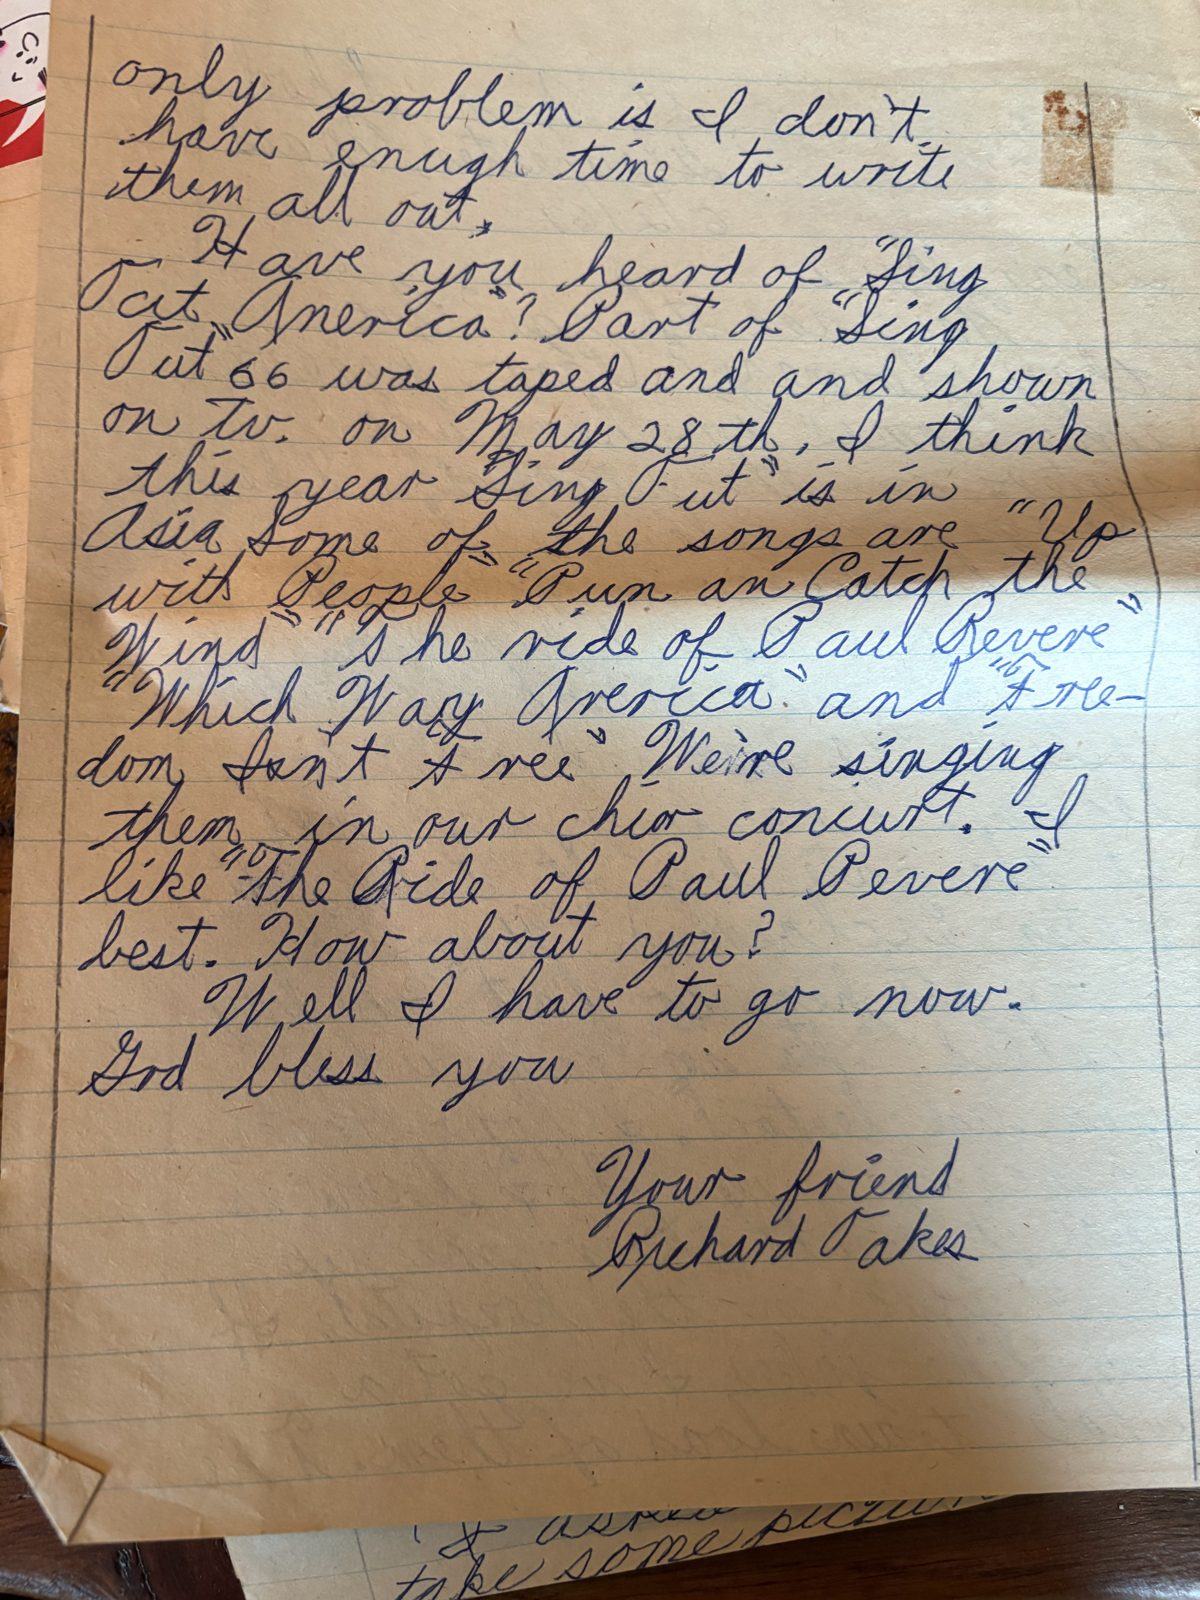 only problem is I don't
have enugh time to write
them all out.
Have you heard of "Sing
Out America"? Part of "Sing
Out" 66 was taped and and shown
on Tv. on May 28th. I think
this year "Sing Out" is in
Asia Some of the songs are "Up
with People" "Run an Catch the
Wind" "The ride of Paul Revere"
"Which Way America" and "Free-
dom Isn't Free" We're singing
them in our chior conciurt. I
like "The Ride of Paul Revere"
best. How about you?
Well I have to go now.
God bless you
Your friend
Richard Oakes
I asked
take some